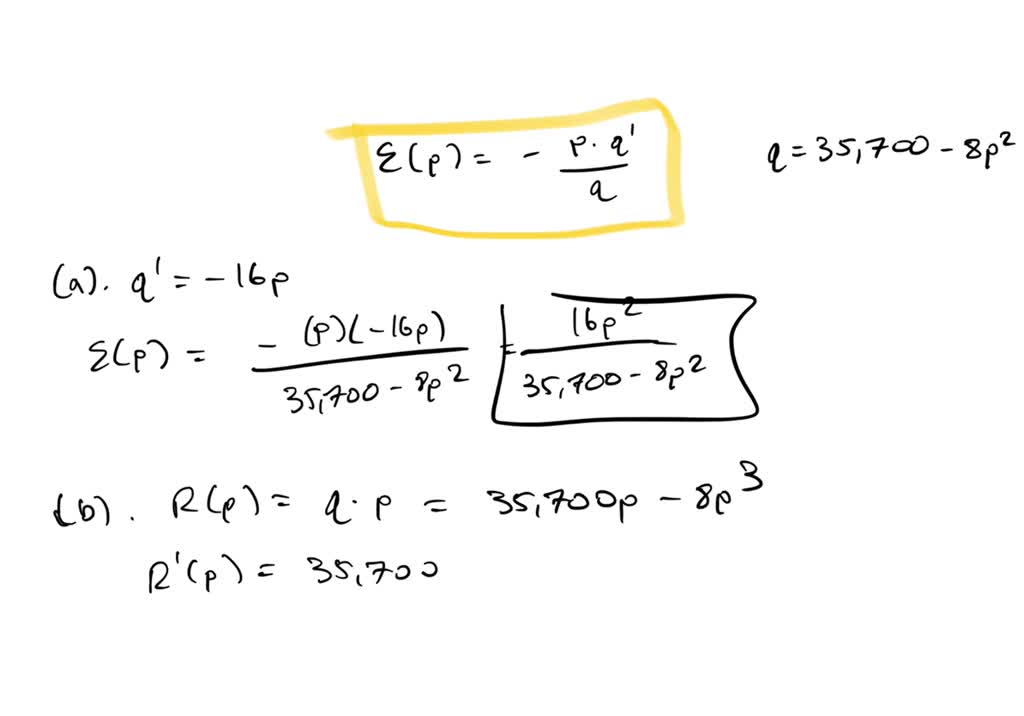 ε(p) = - p · q' / q
q = 35,700 - 8p²
(a). q' = -16p
ε(p) = - (p)(-16p) / 35,700 - 8p² = 16p² / 35,700 - 8p²
(b). R(p) = q · p = 35,700p - 8p³
R'(p) = 35,700